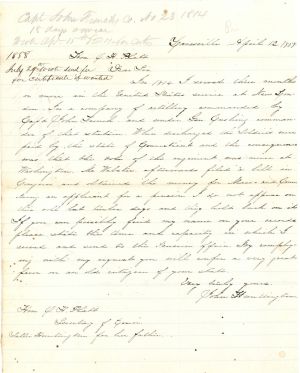 Capt John French Co. No 23 1814
18 days service
Greenville April 12 1858
1858 Hon O H Platt
July 29 Wrote
for Certificate if wanted Dear Sir
In 1814 I served three months
or more in the United States service at New Lon
don. In a company of artillery commanded by
Capt John French and under Gen Cushing comman
der of that station. When discharged the Soldiers were
paid by the State of Connecticut and the consequence
was that the roll of the regiment was never at
Washington. Mr Webster afterwards filed a bill in
Congress and obtained the money for
an applicant for a pension I do not appear on
the
If you can possibly find my name on your records
please state the time and capacity in which I
served and send to the Pension Office. By comply
ing with my request you will confer a very great
favor on an old citizen of your state
Very truly yours
John Huntington
Hon O H Platt
Secretary of
Huntington for her father